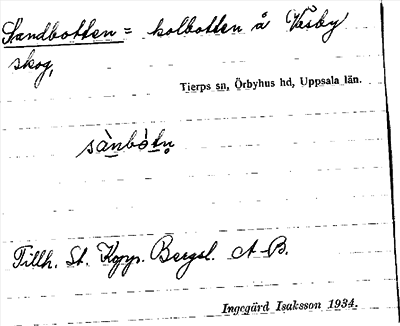 Sandbotten = kolbotten å Väsby
skog,
Tierps sn, Örbyhus hd, Uppsala län.
sànbòtn̥
Tillh. St. Koppr. Bergsl. A-B.
Ingegärd Isaksson 1934.